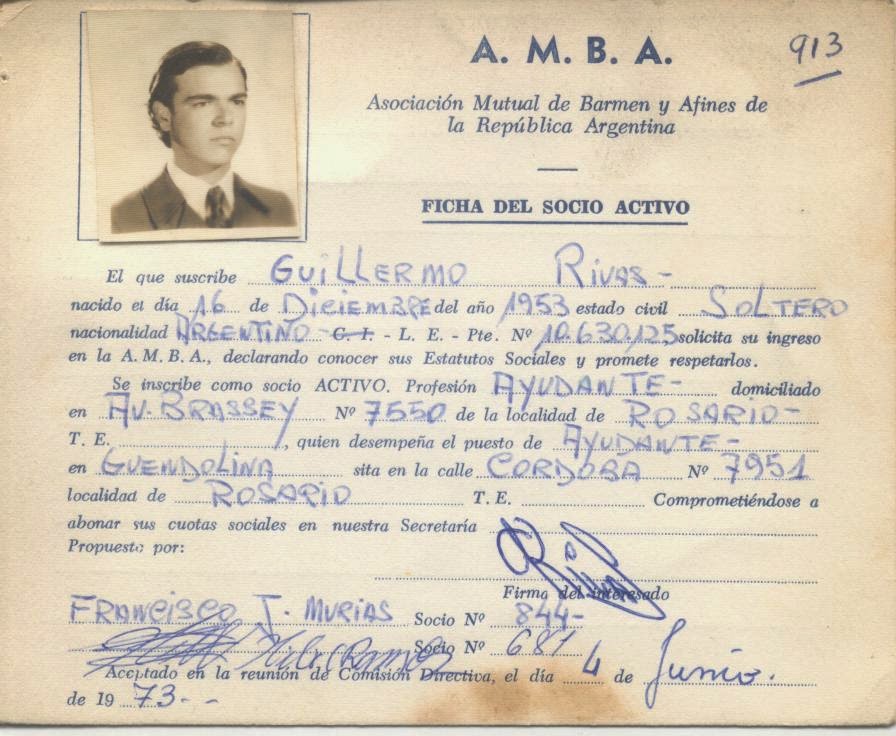 A. M. B. A.
913
Asociación Mutual de Barmen y Afines de
la República Argentina
FICHA DEL SOCIO ACTIVO
El que suscribe GUILLERMO RIVAS-
nacido el día 16 de DICIEMBRE del año 1953 estado civil SOLTERO
nacionalidad ARGENTINO C. I. - L. E. - Pte. Nº 10.630.125 solicita su ingreso
en la A.M.B.A., declarando conocer sus Estatutos Sociales y promete respetarlos.
Se inscribe como socio ACTIVO. Profesión AYUDANTE- domiciliado
en AV. BRASSEY Nº 7550 de la localidad de ROSARIO-
T. E. , quien desempeña el puesto de AYUDANTE-
en GUENDOLINA sita en la calle CORDOBA Nº 7951
localidad de ROSARIO T. E. Comprometiéndose a
abonar sus cuotas sociales en nuestra Secretaría
Propuesto por:
Firma del interesado
FRANCISCO J. MURIAS Socio Nº 844-
Socio Nº 681
Aceptado en la reunión de Comisión Directiva, el día 4 de Junio.
de 19 73.--